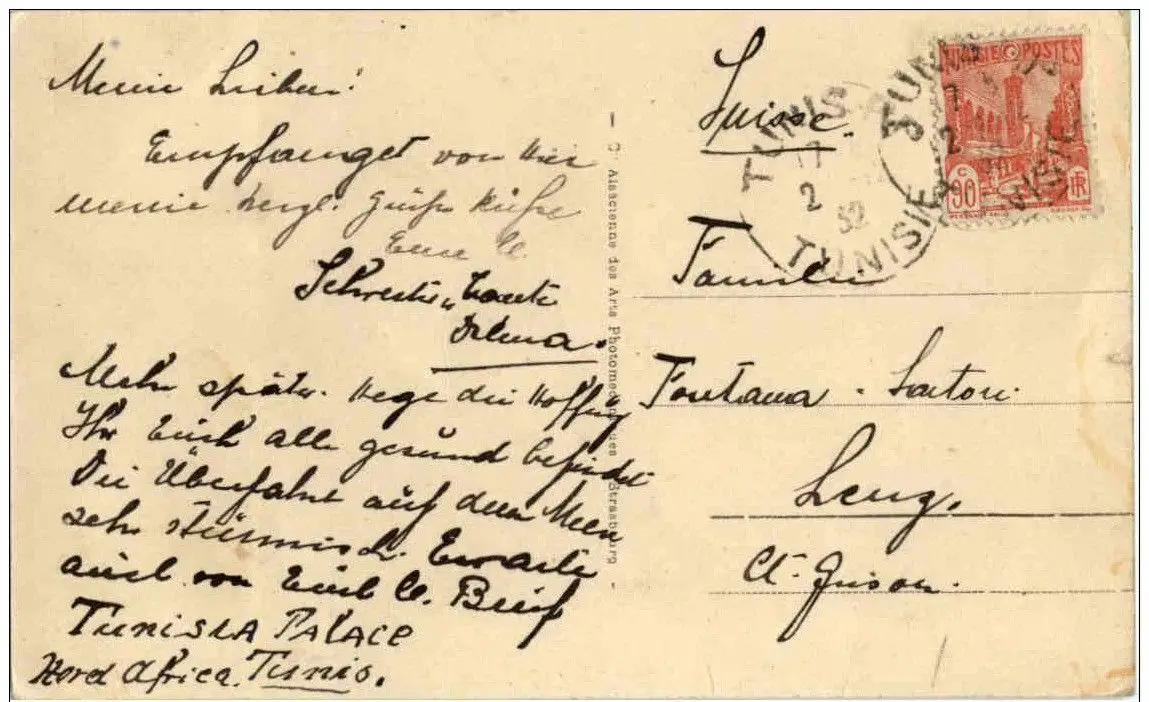 Meine Lieben!
Empfanget von hier
meine herzl. Grüße Küsse
Eure lb.
Schwester u. Tante
Mehr später. Hege die Hoffnüg
Ihr Euch alle gesund befindet
Die Überfahrt auf dem Meer
sehr stürmisch. Erwarte
auch von Euch lb. Brief
TUNISIA PALACE
Nord Africa. Tunis.
- Cie Alsacienne des Arts Photomécaniques Strasbourg -
Suisse.
Familie
Fontana - Sartori
Lenz.
Ct. Grison.
TUNIS
2 32
TUNISIE
TUNIS
2
TUNISIE
TUNISIE POSTES
90 C RF